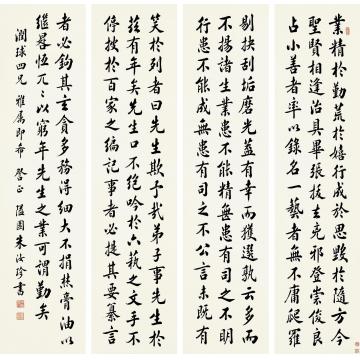 業精於勤荒於嬉行成於思毀於隨方今
聖賢相逢治具畢張拔去兇邪登崇俊良
占小善者率以錄名一藝者無不庸爬羅
剔抉刮垢磨光蓋有幸而獲選孰云多而
不揚諸生業患不能精無患有司之不明
行患不能成無患有司之不公言未既有
笑於列者曰先生欺予哉弟子事先生於
茲有年矣先生口不絕吟於六藝之文手不
停披於百家之編記事者必提其要纂言
者必鉤其玄貪多務得細大不捐焚膏油以
繼晷恆兀兀以窮年先生之業可謂勤矣
潤球四兄 雅屬即希 詧正 隘園朱汝珍書